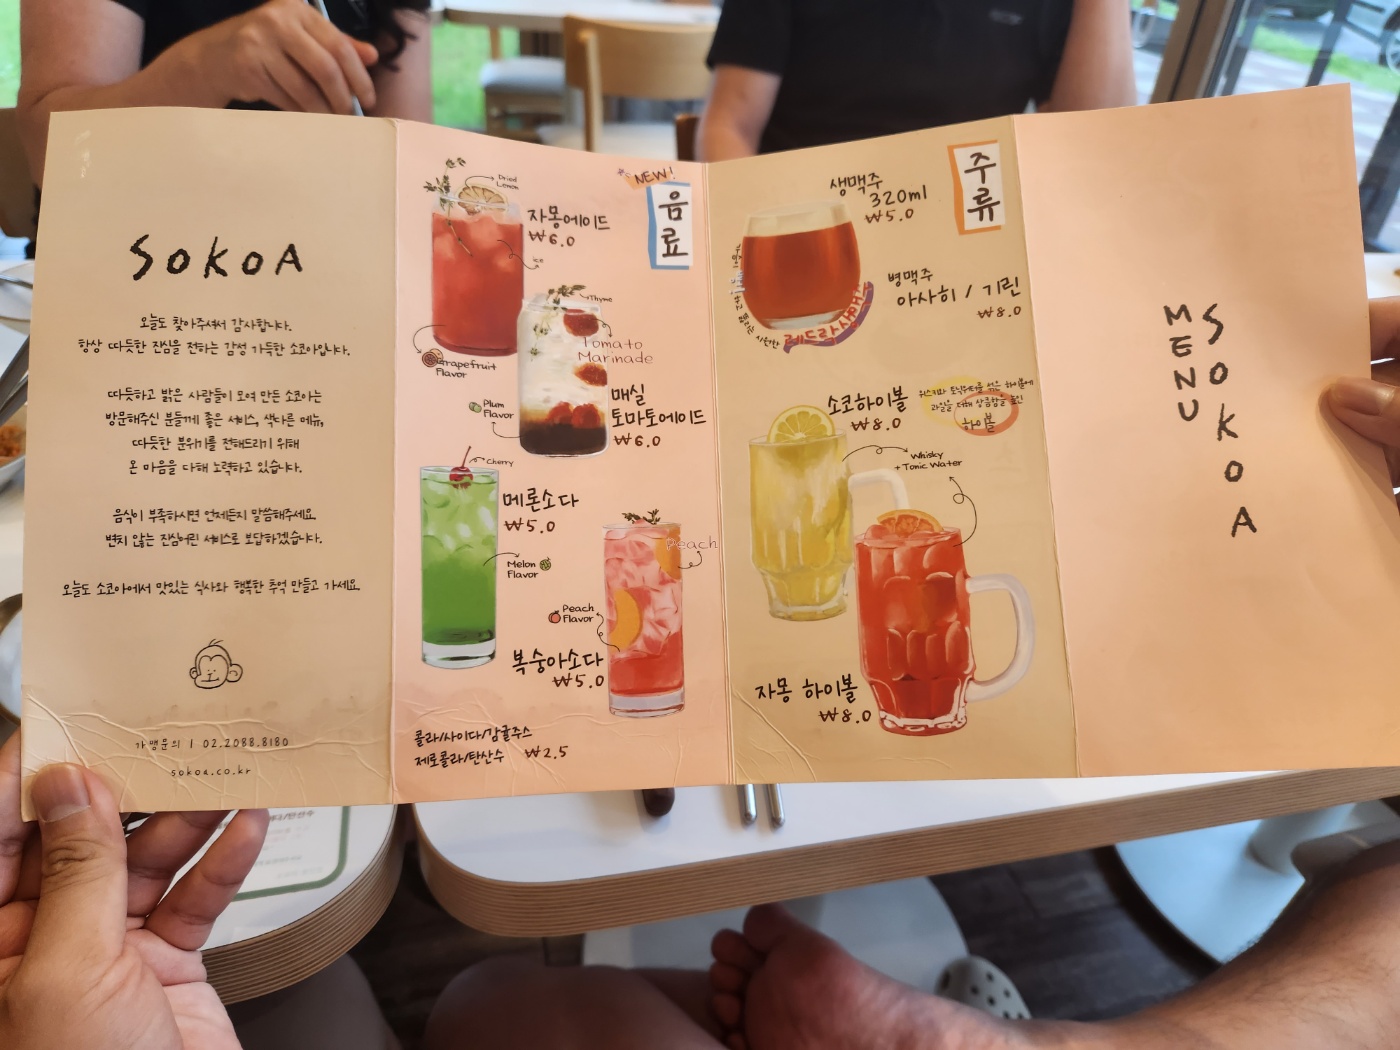 SOKOA
오늘도 찾아주셔서 감사합니다.
항상 따듯한 진심을 전하는 감성 가득한 소코아입니다.
따듯하고 밝은 사람들이 모여 만든 소코아는
방문해주신 분들께 좋은 서비스, 색다른 메뉴,
따듯한 분위기를 전해드리기 위해
온 마음을 다해 노력하고 있습니다.
음식이 부족하시면 언제든지 말씀해주세요
변치 않는 진심어린 서비스로 보답하겠습니다.
오늘도 소코아에서 맛있는 식사와 행복한 추억 만들고 가세요.
가맹문의 | 02.2088.8180
sokoa.co.kr
NEW!
음료
Dried
Lemon
자몽에이드
₩6.0
ice
Grapefruit
Flavor
Thyme
Tomato
Marinade
Plum
Flavor
매실
토마토에이드
₩6.0
Cherry
메론소다
₩5.0
Melon
Flavor
Peach
Peach
Flavor
복숭아소다
₩5.0
콜라/사이다/감귤주스
제로콜라/탄산수 ₩2.5
주류
생맥주
320ml
₩5.0
레드락생맥주
병맥주
아사히 / 기린
₩8.0
소코하이볼
₩8.0
위스키와 토닉워터를 섞은 하이볼에
과일을 더해 상큼함을 높인
하이볼
Whisky
+ Tonic Water
자몽 하이볼
₩8.0
MENU
SOKOA